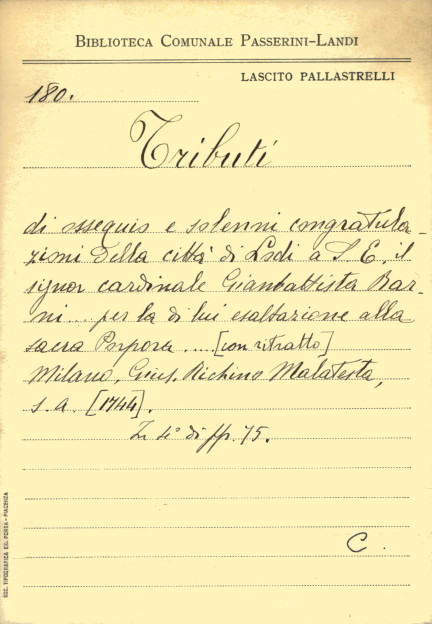 BIBLIOTECA COMUNALE PASSERINI-LANDI
LASCITO PALLASTRELLI
180.
Tributi
di ossequio e solenni congratula-
zioni della città di Lodi a S. E. il
signor cardinale Gianbattista Bar-
ni... per la di lui esaltazione alla
sacra Porpora.... [con ritratto]
Milano, Gius. Richino Malatesta,
s. a. [1744].
In 4° di pp. 75.
C.
SOC. TIPOGRAFICA ED. PORTA - PIACENZA